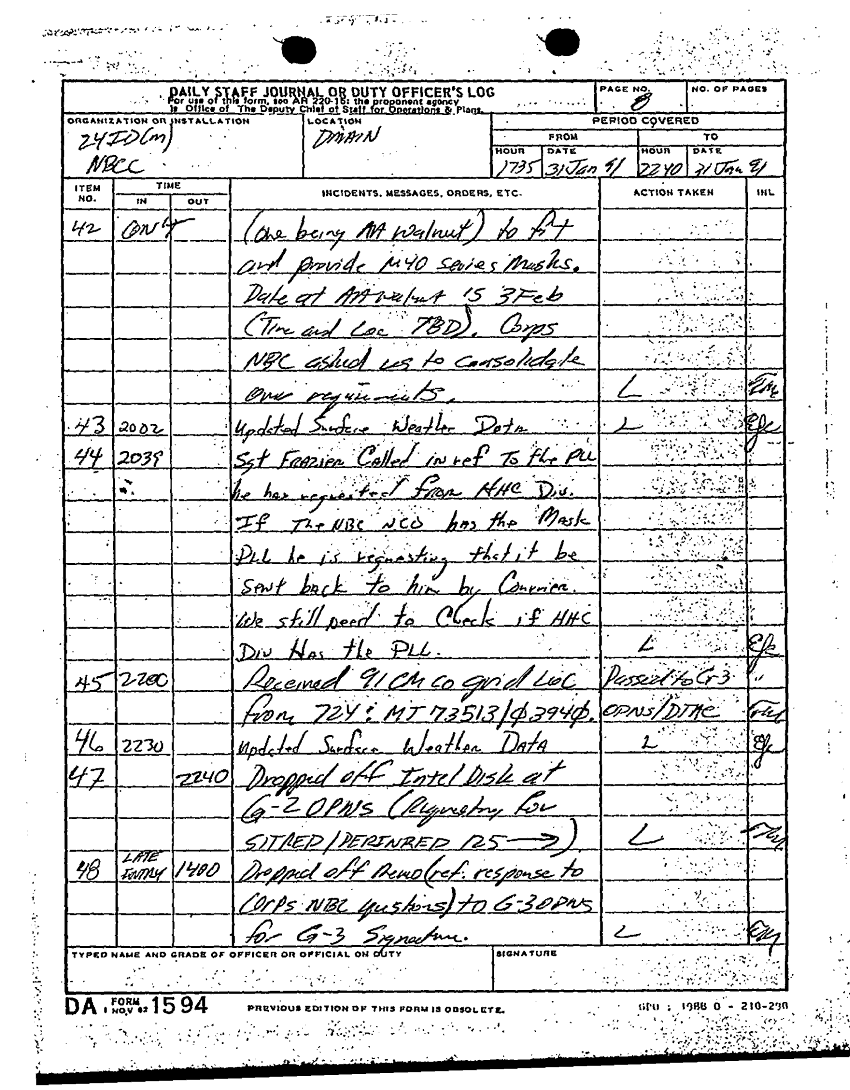 DAILY STAFF JOURNAL OR DUTY OFFICER'S LOG
For use of this form, see AR 220-15; the proponent agency
is Office of The Deputy Chief of Staff for Operations & Plans.
PAGE NO.
8
NO. OF PAGES
ORGANIZATION OR INSTALLATION
24 ID(M)
NBCC
LOCATION
DMAIN
PERIOD COVERED
FROM TO
HOUR DATE HOUR DATE
1735 31 Jan 91 2240 31 Jan 91
ITEM NO. TIME IN OUT INCIDENTS, MESSAGES, ORDERS, ETC. ACTION TAKEN INL
42 CON'T (One being AA Walnut) to fit
and provide M40 series Masks.
Date at AA Walnut is 3 Feb
(Time and Loc TBD). Corps
NBC asked us to consolidate
our requirements. L
43 2002 Updated Surface Weather Data L
44 2039 Sgt Frazier Called in ref To the PLL
he has requested from HHC Div.
If The NBC NCO has the Mask
PLL he is requesting that it be
sent back to him by Courrier.
We still need to Check if HHC
Div Has the PLL. L
45 2200 Received 91 CM CO grid LOC Passed to G3 "
from 724: MT 73513/Ø394Ø. OPNS/DTAC
46 2230 Updated Surface Weather DATA L
47 2240 Dropped off Intel Disk at
G-2 OPNS ( for
SITREP/PERINREP 125 →). L
48 LATE ENTRY 1400 Dropped off Memo (ref. response to
Corps NBC questions) to G-3 OPNS
for G-3 Signature. L
TYPED NAME AND GRADE OF OFFICER OR OFFICIAL ON DUTY SIGNATURE
DA FORM 1 NOV 62 1594 PREVIOUS EDITION OF THIS FORM IS OBSOLETE. GPO : 1988 O - 210-290